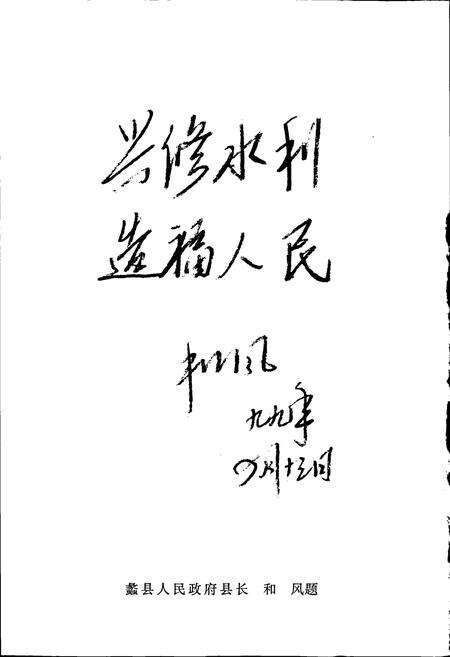 兴修水利
造福人民
和风
九九年
四月十三日
蠡县人民政府县长 和 风题